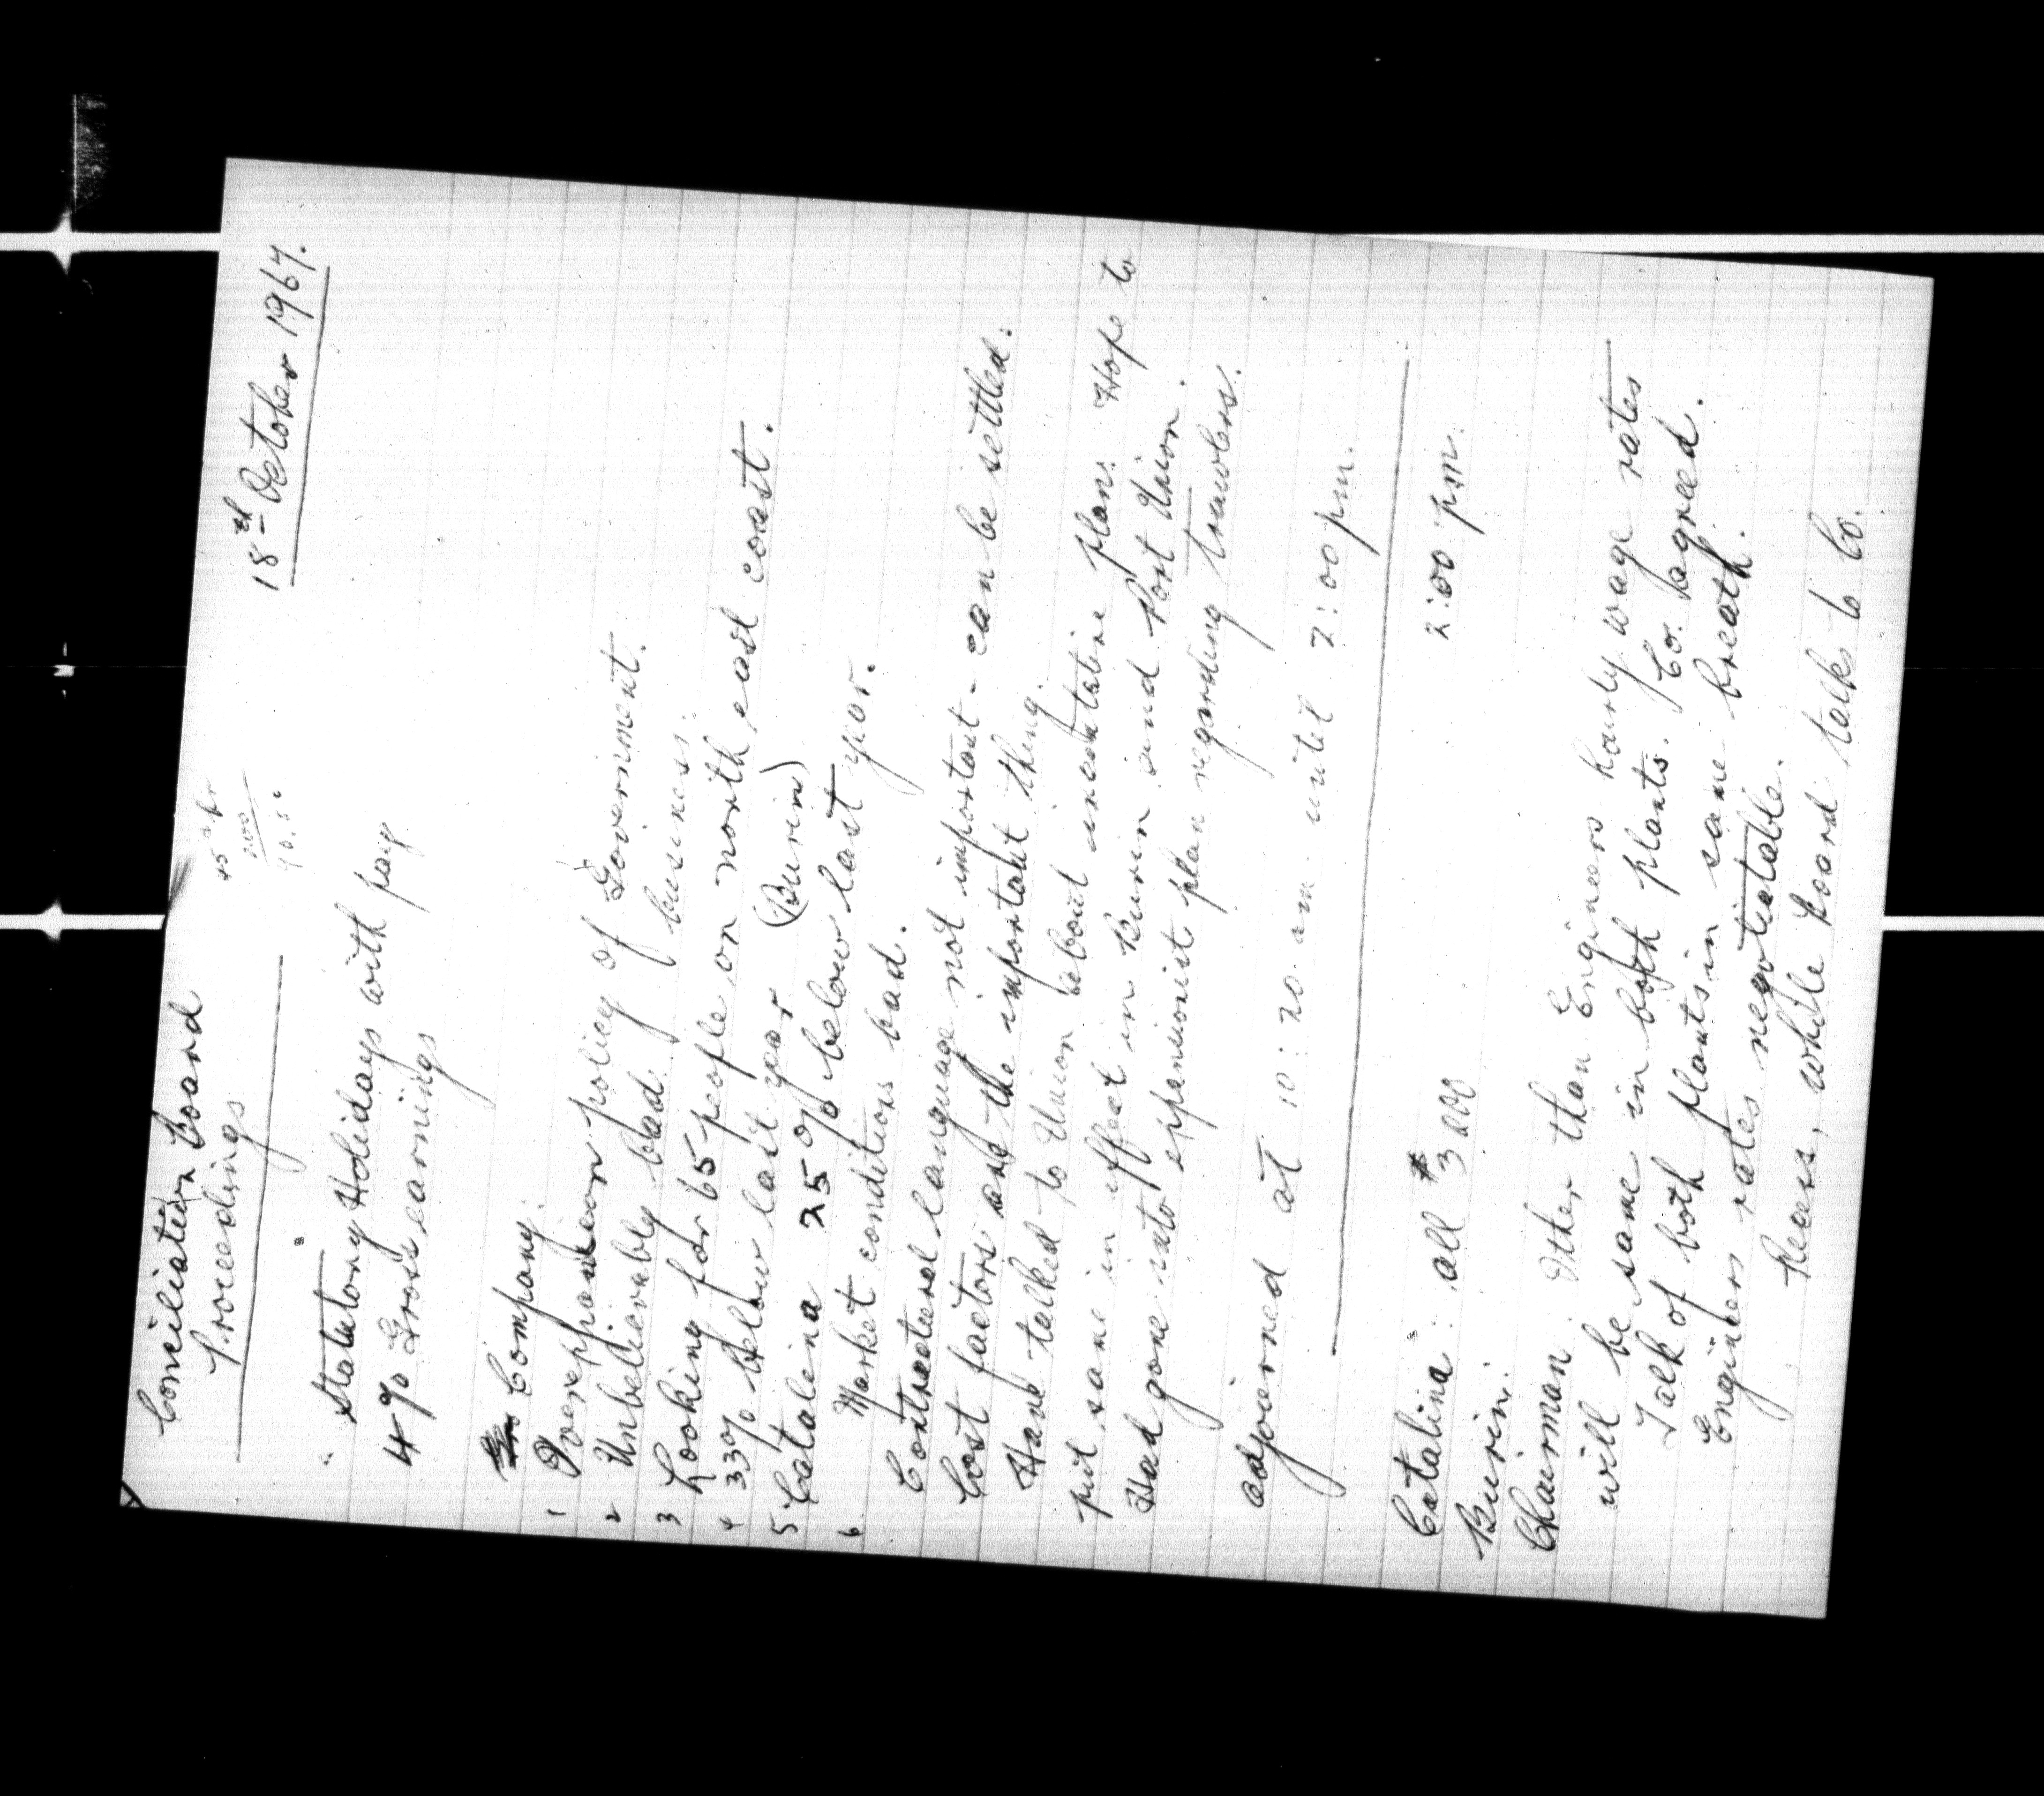 Conciliation Board
Proceedings
18th October 1967.
Statutory Holidays with pay
4% Gross earnings
Company:
1 Overexpansion policy of Government.
2 Unbelievably bad business.
3 Looking for 65 people on north east coast.
4 33% below last year (Burin)
5 Catalina 25% below last year.
6. Market conditions bad.
Contractural language not important - can be settled.
Cost factors are the important thing.
Have talked to Union about incentative plan. Hope to
put same in effect in Burin and Port Union.
Had gone into expansionist plan regarding trawlers.
adjourned at 10:20 am until 2:00 pm.
2:00 pm.
Catalina: all $3000
Burin:
Chairman. Other than Engineers hourly wage rates
will be same in both plants. Co. agreed.
Talk of both plants in same breath.
Engineers rates negotiatable.
Recess, while Board talks to Co.